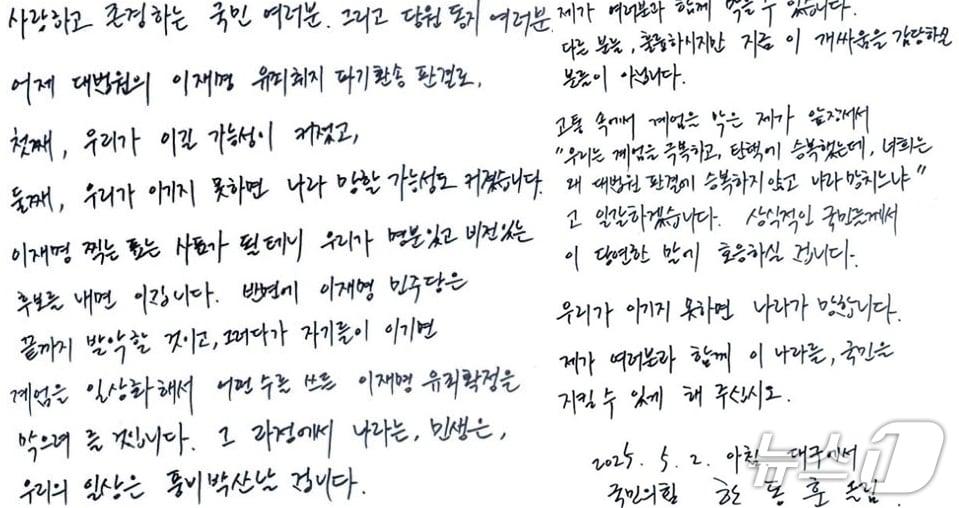 사랑하고 존경하는 국민 여러분. 그리고 당원 동지 여러분.
어제 대법원의 이재명 유죄취지 파기환송 판결로,
첫째, 우리가 이길 가능성이 커졌고,
둘째, 우리가 이기지 못하면 나라 망할 가능성도 커졌습니다.
이재명 찍는 표는 사표가 될테니 우리가 명분있고 비전있는
후보를 내면 이깁니다. 반면에 이재명 민주당은
끝까지 발악할 것이고, 그러다가 자기들이 이기면
계엄을 일상화해서 어떤 수를 쓰든 이재명 유죄확정을
막으려 들 것입니다. 그 과정에서 나라는, 민생은,
우리의 일상은 풍비박산날 겁니다.
제가 여러분과 함께 막을 수 있습니다.
다른 분들, 훌륭하시지만 지금 이 개싸움을 감당하실
분들이 아닙니다.
고통 속에서 계엄을 막은 제가 앞장서서
"우리는 계엄을 극복하고, 탄핵에 승복했는데, 너희는
왜 대법원 판결에 승복하지 않고 나라 망치느냐"
고 일갈하겠습니다. 상식적인 국민들께서
이 당연한 말에 호응하실 겁니다.
우리가 이기지 못하면 나라가 망합니다.
제가 여러분과 함께 이 나라를, 국민을
지킬 수 있게 해 주십시오.
2025. 5. 2. 아침 대구에서
국민의힘 한 동 훈 올림.
뉴스1